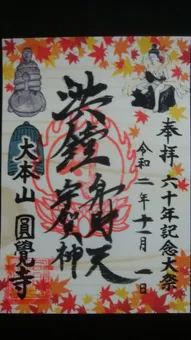 奉拝 六十年記念大祭
令和二年十一月一日
洪鐘弁財天
宇賀神
大本山 圓覺寺